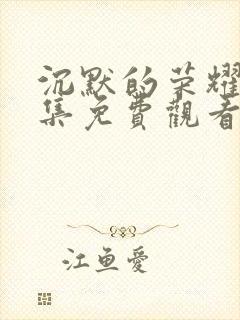 沉默的荣耀
集免費觀看
江鱼愛